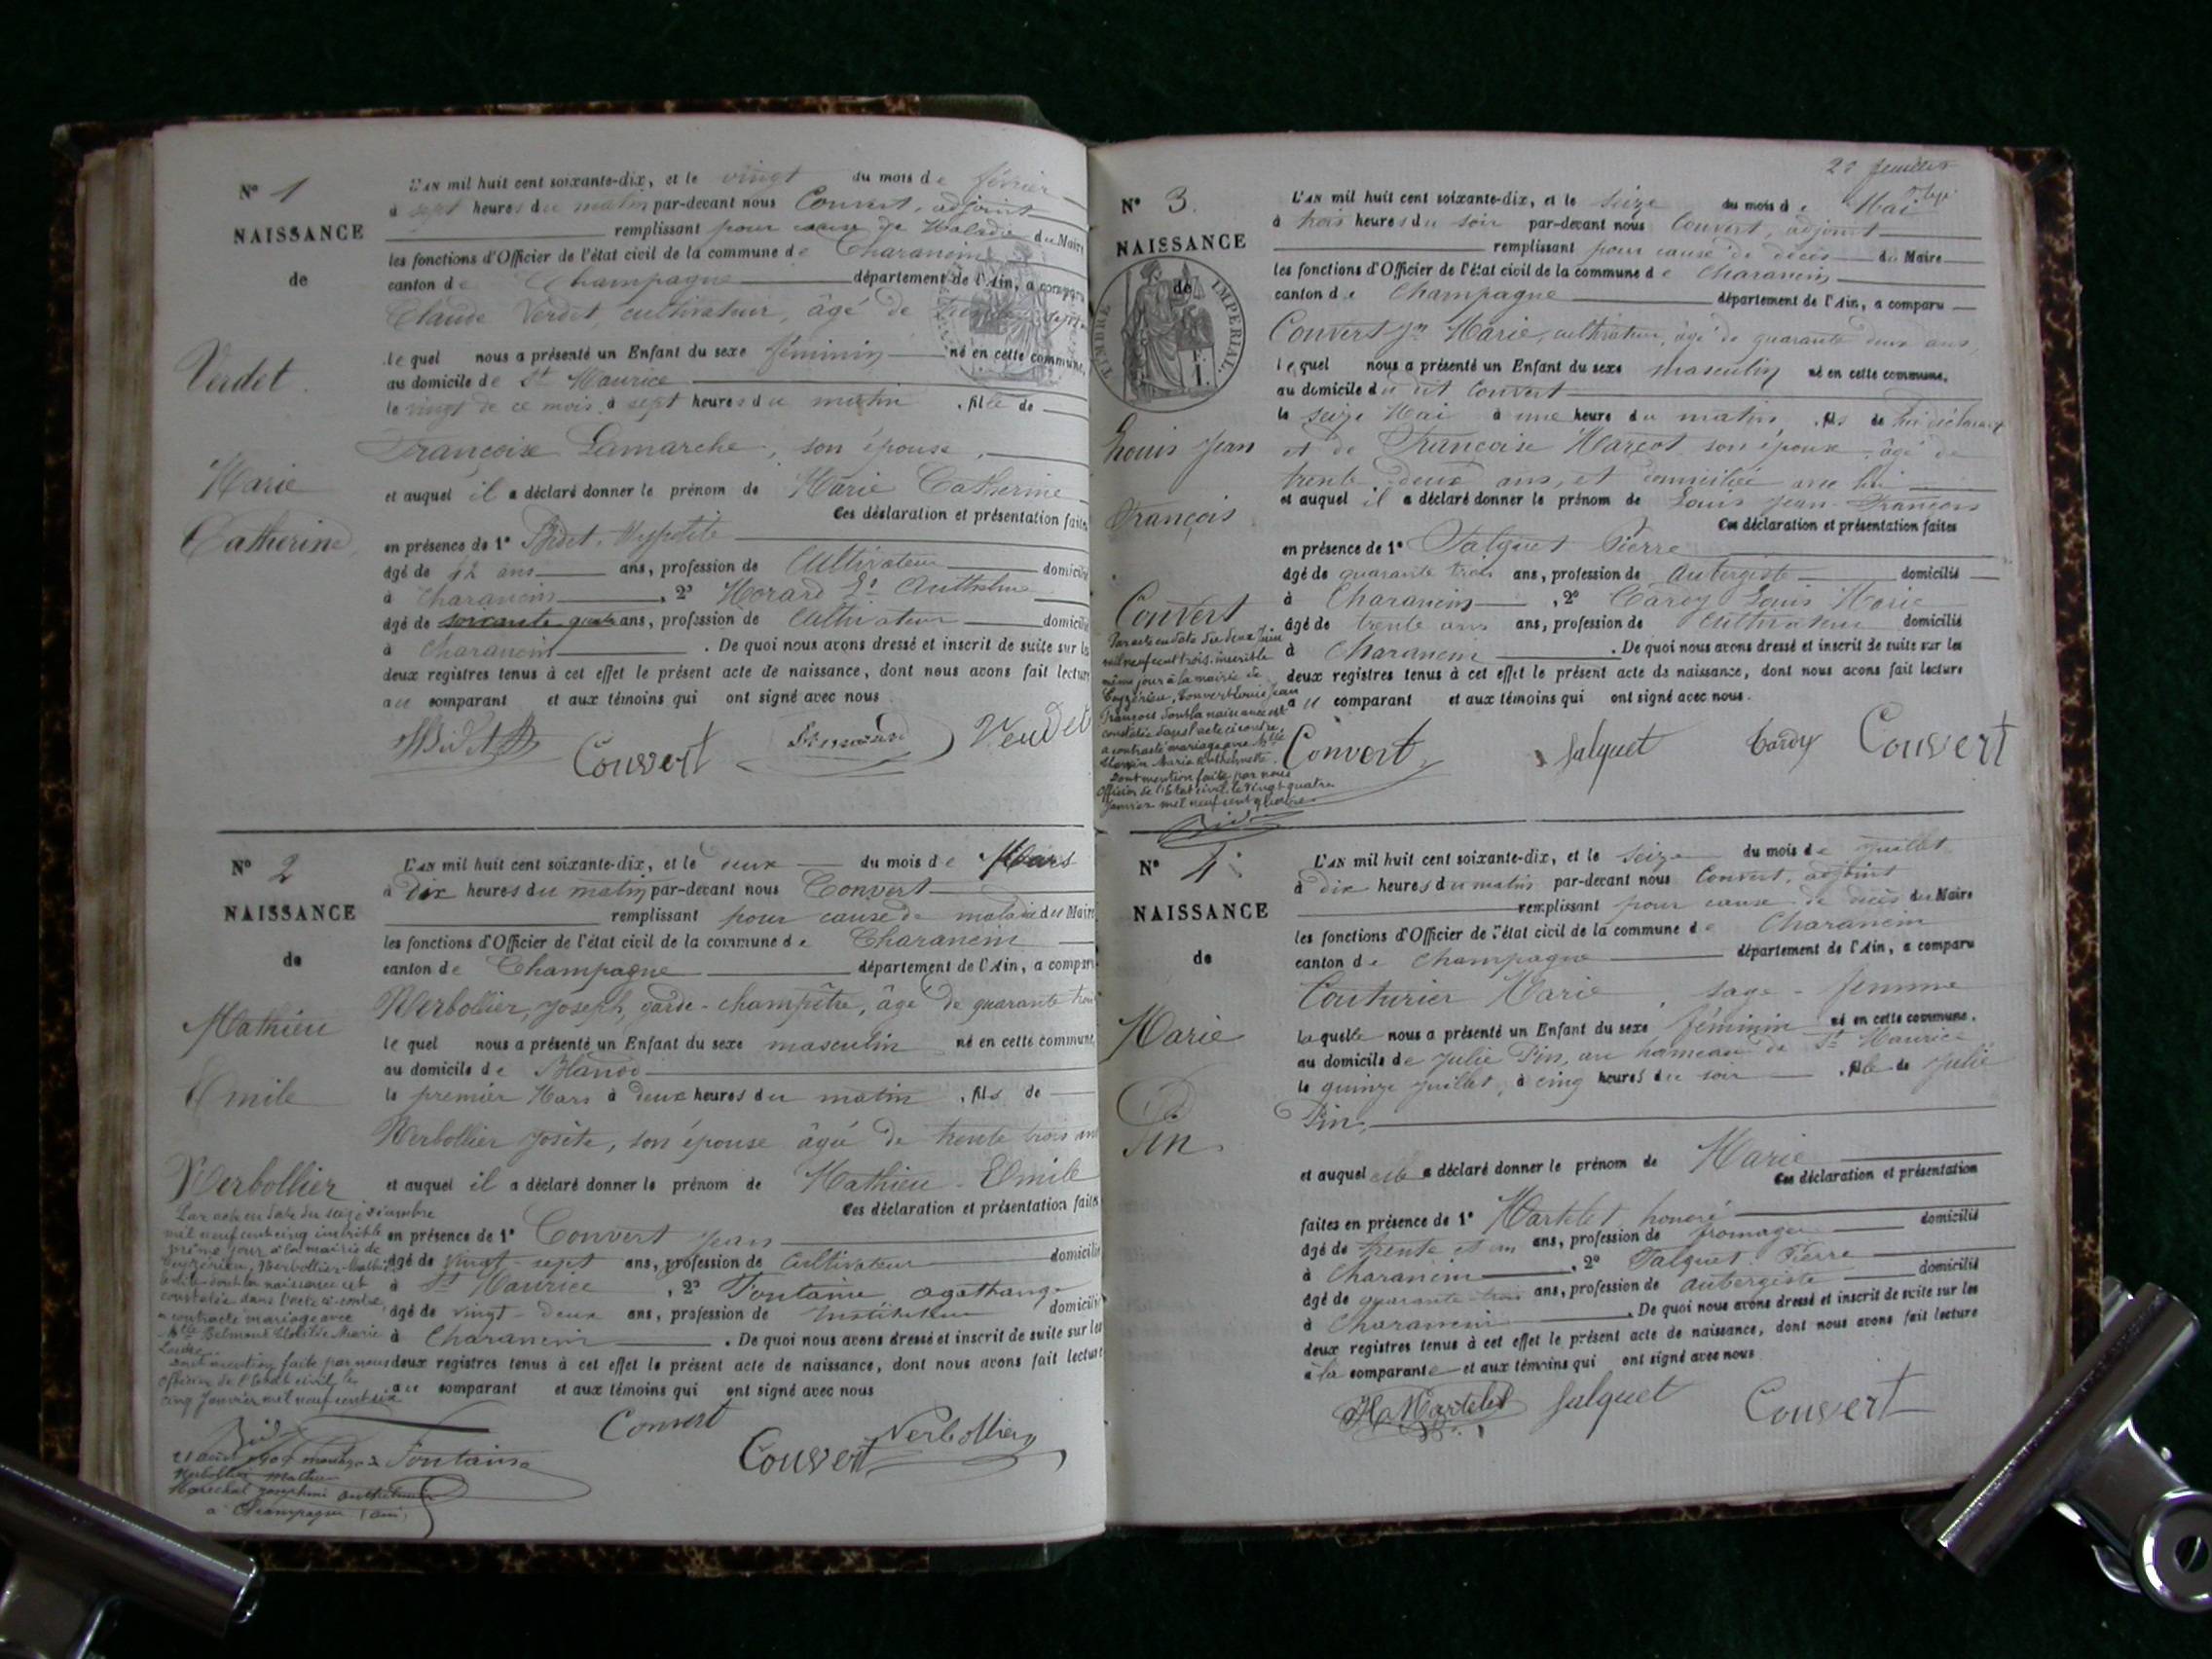 N° 1
NAISSANCE
de
Verdet
Marie
Catherine
L'AN mil huit cent soixante-dix, et le vingt du mois de février
à sept heures du matin par-devant nous Convert, adjoint
remplissant pour cause de Maladie du Maire
les fonctions d'Officier de l'état civil de la commune de Charancin
canton de Champagne département de l'Ain, a comparu
Claude Verdet, cultivateur, âgé de trente sept
lequel nous a présenté un Enfant du sexe féminin né en cette commune,
au domicile de St Maurice
le vingt de ce mois à sept heures du matin , fille de
Françoise Lamarche, son épouse,
et auquel il a déclaré donner le prénom de Marie Catherine
Ces déclaration et présentation faites
en présence de 1° Bidet, Hypolite
âgé de 42 ans ans, profession de Cultivateur domicilié
à Charancin , 2° Morard Anthelme
âgé de soixante quatre ans, profession de Cultivateur domicilié
à Charancin . De quoi nous avons dressé et inscrit de suite sur les
deux registres tenus à cet effet le présent acte de naissance, dont nous avons fait lecture
au comparant et aux témoins qui ont signé avec nous
Convert Verdet
N° 2
NAISSANCE
de
Mathieu
Emile
Nerbollier
L'AN mil huit cent soixante-dix, et le deux du mois de Mars
à dix heures du matin par-devant nous Convert
remplissant pour cause de maladie du Maire
les fonctions d'Officier de l'état civil de la commune de Charancin
canton de Champagne département de l'Ain, a comparu
Nerbollier, Joseph, garde-champêtre, âgé de quarante
lequel nous a présenté un Enfant du sexe masculin né en cette commune,
au domicile de
le premier Mars à deux heures du matin , fils de
Nerbollier Josète, son épouse âgée de trente trois ans
et auquel il a déclaré donner le prénom de Mathieu-Emile
Ces déclaration et présentation faites
en présence de 1° Convert Jean
âgé de vingt-sept ans, profession de Cultivateur domicilié
à St Maurice , 2° Fontaine agathange
âgé de vingt-deux ans, profession de Instituteur domicilié
à Charancin . De quoi nous avons dressé et inscrit de suite sur les
deux registres tenus à cet effet le présent acte de naissance, dont nous avons fait lecture
au comparant et aux témoins qui ont signé avec nous
Par acte en date du seize décembre
mil neuf cent cinq inscrit le
même jour à la mairie de
Ceyzérieu, Nerbollier Mathieu
Emile dont la naissance est
constatée dans l'acte ci-contre,
a contracté mariage avec
Mlle Belmont Marie
Louise.
Dont mention faite par nous
Officier de l'Etat civil, le
cinq Janvier mil neuf cent six
Convert Convert Nerbollier
Fontaine
21 août mariage
Nerbollier Mathieu
Maréchal Joséphine Anthelmette
à Champagne (Ain)
2e feuillet
N° 3.
NAISSANCE
de
TIMBRE IMPERIAL
Louis Jean
François
Convert
L'AN mil huit cent soixante-dix, et le seize du mois de Mai
à trois heures du soir par-devant nous Convert, adjoint
remplissant pour cause de décès du Maire
les fonctions d'Officier de l'état civil de la commune de Charancin
canton de Champagne département de l'Ain, a comparu
Convert Jn Marie, cultivateur, âgé de quarante deux ans
lequel nous a présenté un Enfant du sexe masculin né en cette commune,
au domicile du dit Convert
le seize Mai à une heure du matin , fils de lui déclarant
et de Françoise Marcot son épouse, âgé de
trente deux ans, et domiciliée avec lui
et auquel il a déclaré donner le prénom de Louis Jean-François
Ces déclaration et présentation faites
en présence de 1° Salquet Pierre
âgé de quarante trois ans, profession de Aubergiste domicilié
à Charancin , 2° Cardy Louis Marie
âgé de trente ans ans, profession de Cultivateur domicilié
à Charancin . De quoi nous avons dressé et inscrit de suite sur les
deux registres tenus à cet effet le présent acte de naissance, dont nous avons fait lecture
au comparant et aux témoins qui ont signé avec nous.
Par acte en date du deux Juin
mil neuf cent trois, inscrit le
même jour à la mairie de
Ceyzérieu, Convert Louis Jean
François dont la naissance est
constatée dans l'acte ci-contre,
a contracté mariage avec Mlle
Marie Anthelmette
Dont mention faite par nous
Officier de l'Etat civil, le vingt-quatre
Janvier mil neuf cent quatre
Convert Salquet Cardy Convert
N° 4
NAISSANCE
de
Marie
Pin
L'AN mil huit cent soixante-dix, et le seize du mois de Juillet
à dix heures du matin par-devant nous Convert, adjoint
remplissant pour cause de décès du Maire
les fonctions d'Officier de l'état civil de la commune de Charancin
canton de Champagne département de l'Ain, a comparu
Couturier Marie, sage-femme
laquelle nous a présenté un Enfant du sexe féminin né en cette commune,
au domicile de Julie Pin, au hameau de St Maurice
le quinze juillet, à cinq heures du soir , fille de Julie
Pin,
et auquel elle a déclaré donner le prénom de Marie
Ces déclaration et présentation
faites en présence de 1° Martelet honoré domicilié
âgé de trente et un ans, profession de fromager
à Charancin , 2° Salquet Pierre
âgé de quarante-trois ans, profession de Aubergiste domicilié
à Charancin . De quoi nous avons dressé et inscrit de suite sur les
deux registres tenus à cet effet le présent acte de naissance, dont nous avons fait lecture
à la comparante et aux témoins qui ont signé avec nous
H. Martelet Salquet Convert